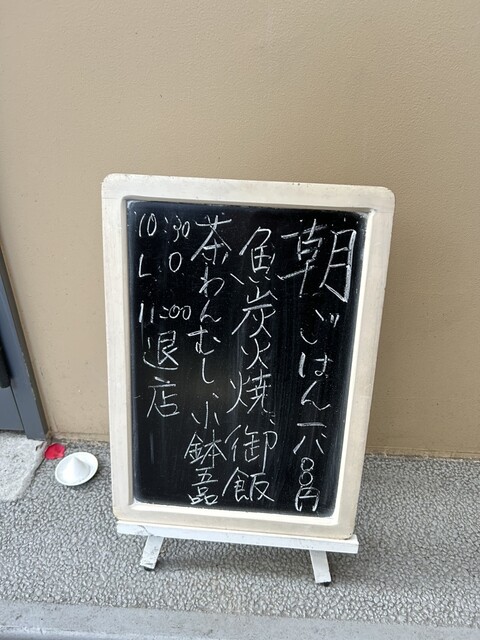 朝ごはん 一八〇〇円
魚炭火焼、御飯
茶わんむし、小鉢五品
10:30
L O
11:00
退店